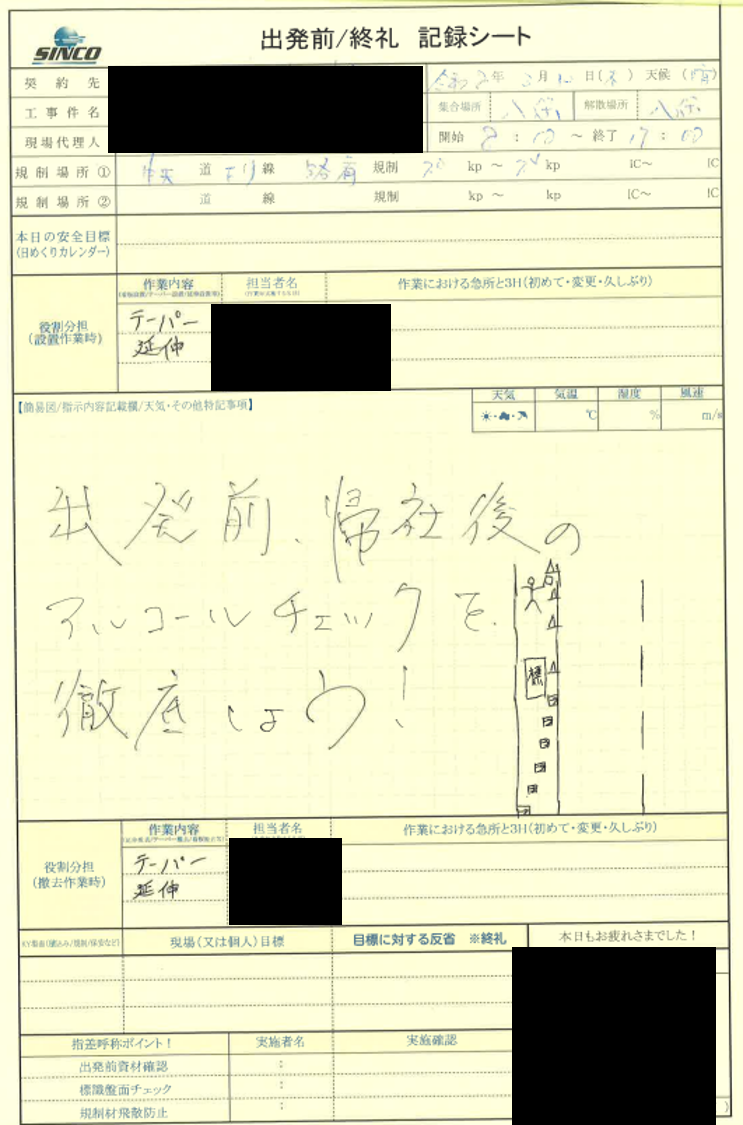 SINCO
出発前/終礼 記録シート
契約先
令和 年 月 日( ) 天候( )
工事件名
集合場所 八保 解散場所 八保
現場代理人
開始 : ～ 終了 17 : 00
規制場所① 中央 道 下り 線 路肩 規制 kp ～ kp IC～ IC
規制場所② 道 線 規制 kp ～ kp IC～ IC
本日の安全目標
(日めくりカレンダー)
役割分担
(設置作業時)
作業内容 担当者名 作業における急所と3H(初めて・変更・久しぶり)
テーパー
延伸
【簡易図/指示内容記載欄/天気・その他特記事項】
天気 気温 湿度 風速
℃ % m/s
出発前、帰社後の
アルコールチェックを
徹底しよう!
標
役割分担
(撤去作業時)
作業内容 担当者名 作業における急所と3H(初めて・変更・久しぶり)
テーパー
延伸
現場(又は個人)目標 目標に対する反省 ※終礼 本日もお疲れさまでした!
指差呼称ポイント! 実施者名 実施確認
出発前資材確認 :
標識盤面チェック :
規制材飛散防止 :
)